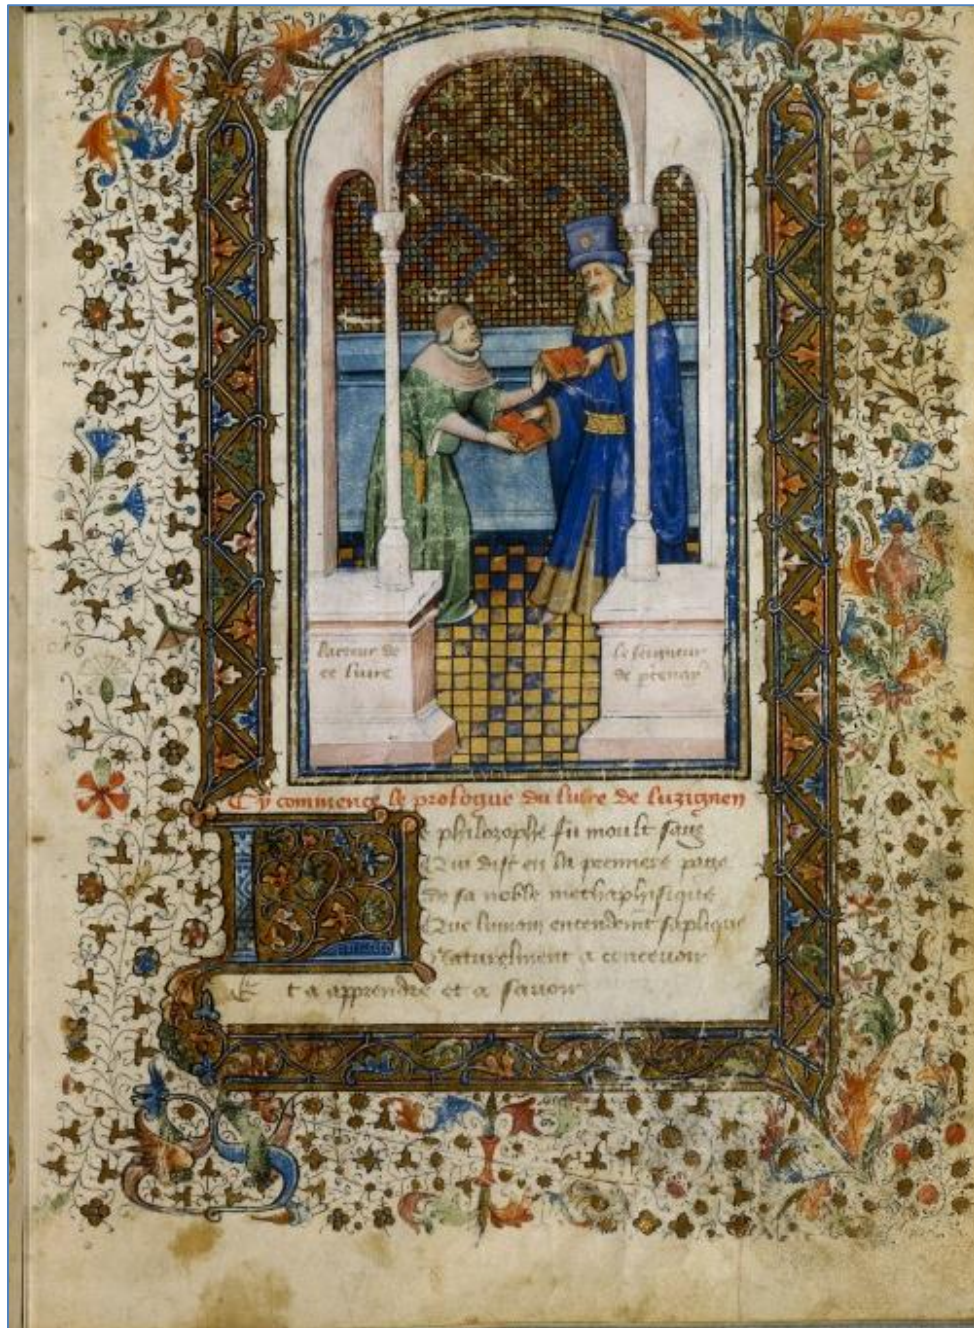 Lacteur de
ce livre
Le seigneur
de ptenay
Cy commence le prologue du livre de luzignen
Le philozophe fu moult saige
Qui dist en la premiere page
De sa noble methaphisique
Que lumain entendemt saplique
Naturelment a concevoir
Et a apprendre et a savoir